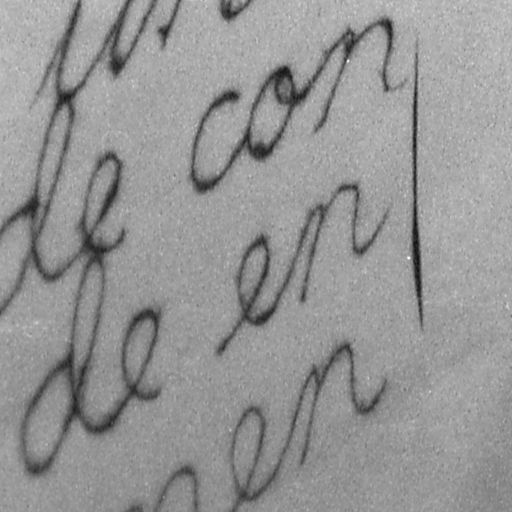 de con
de en
en